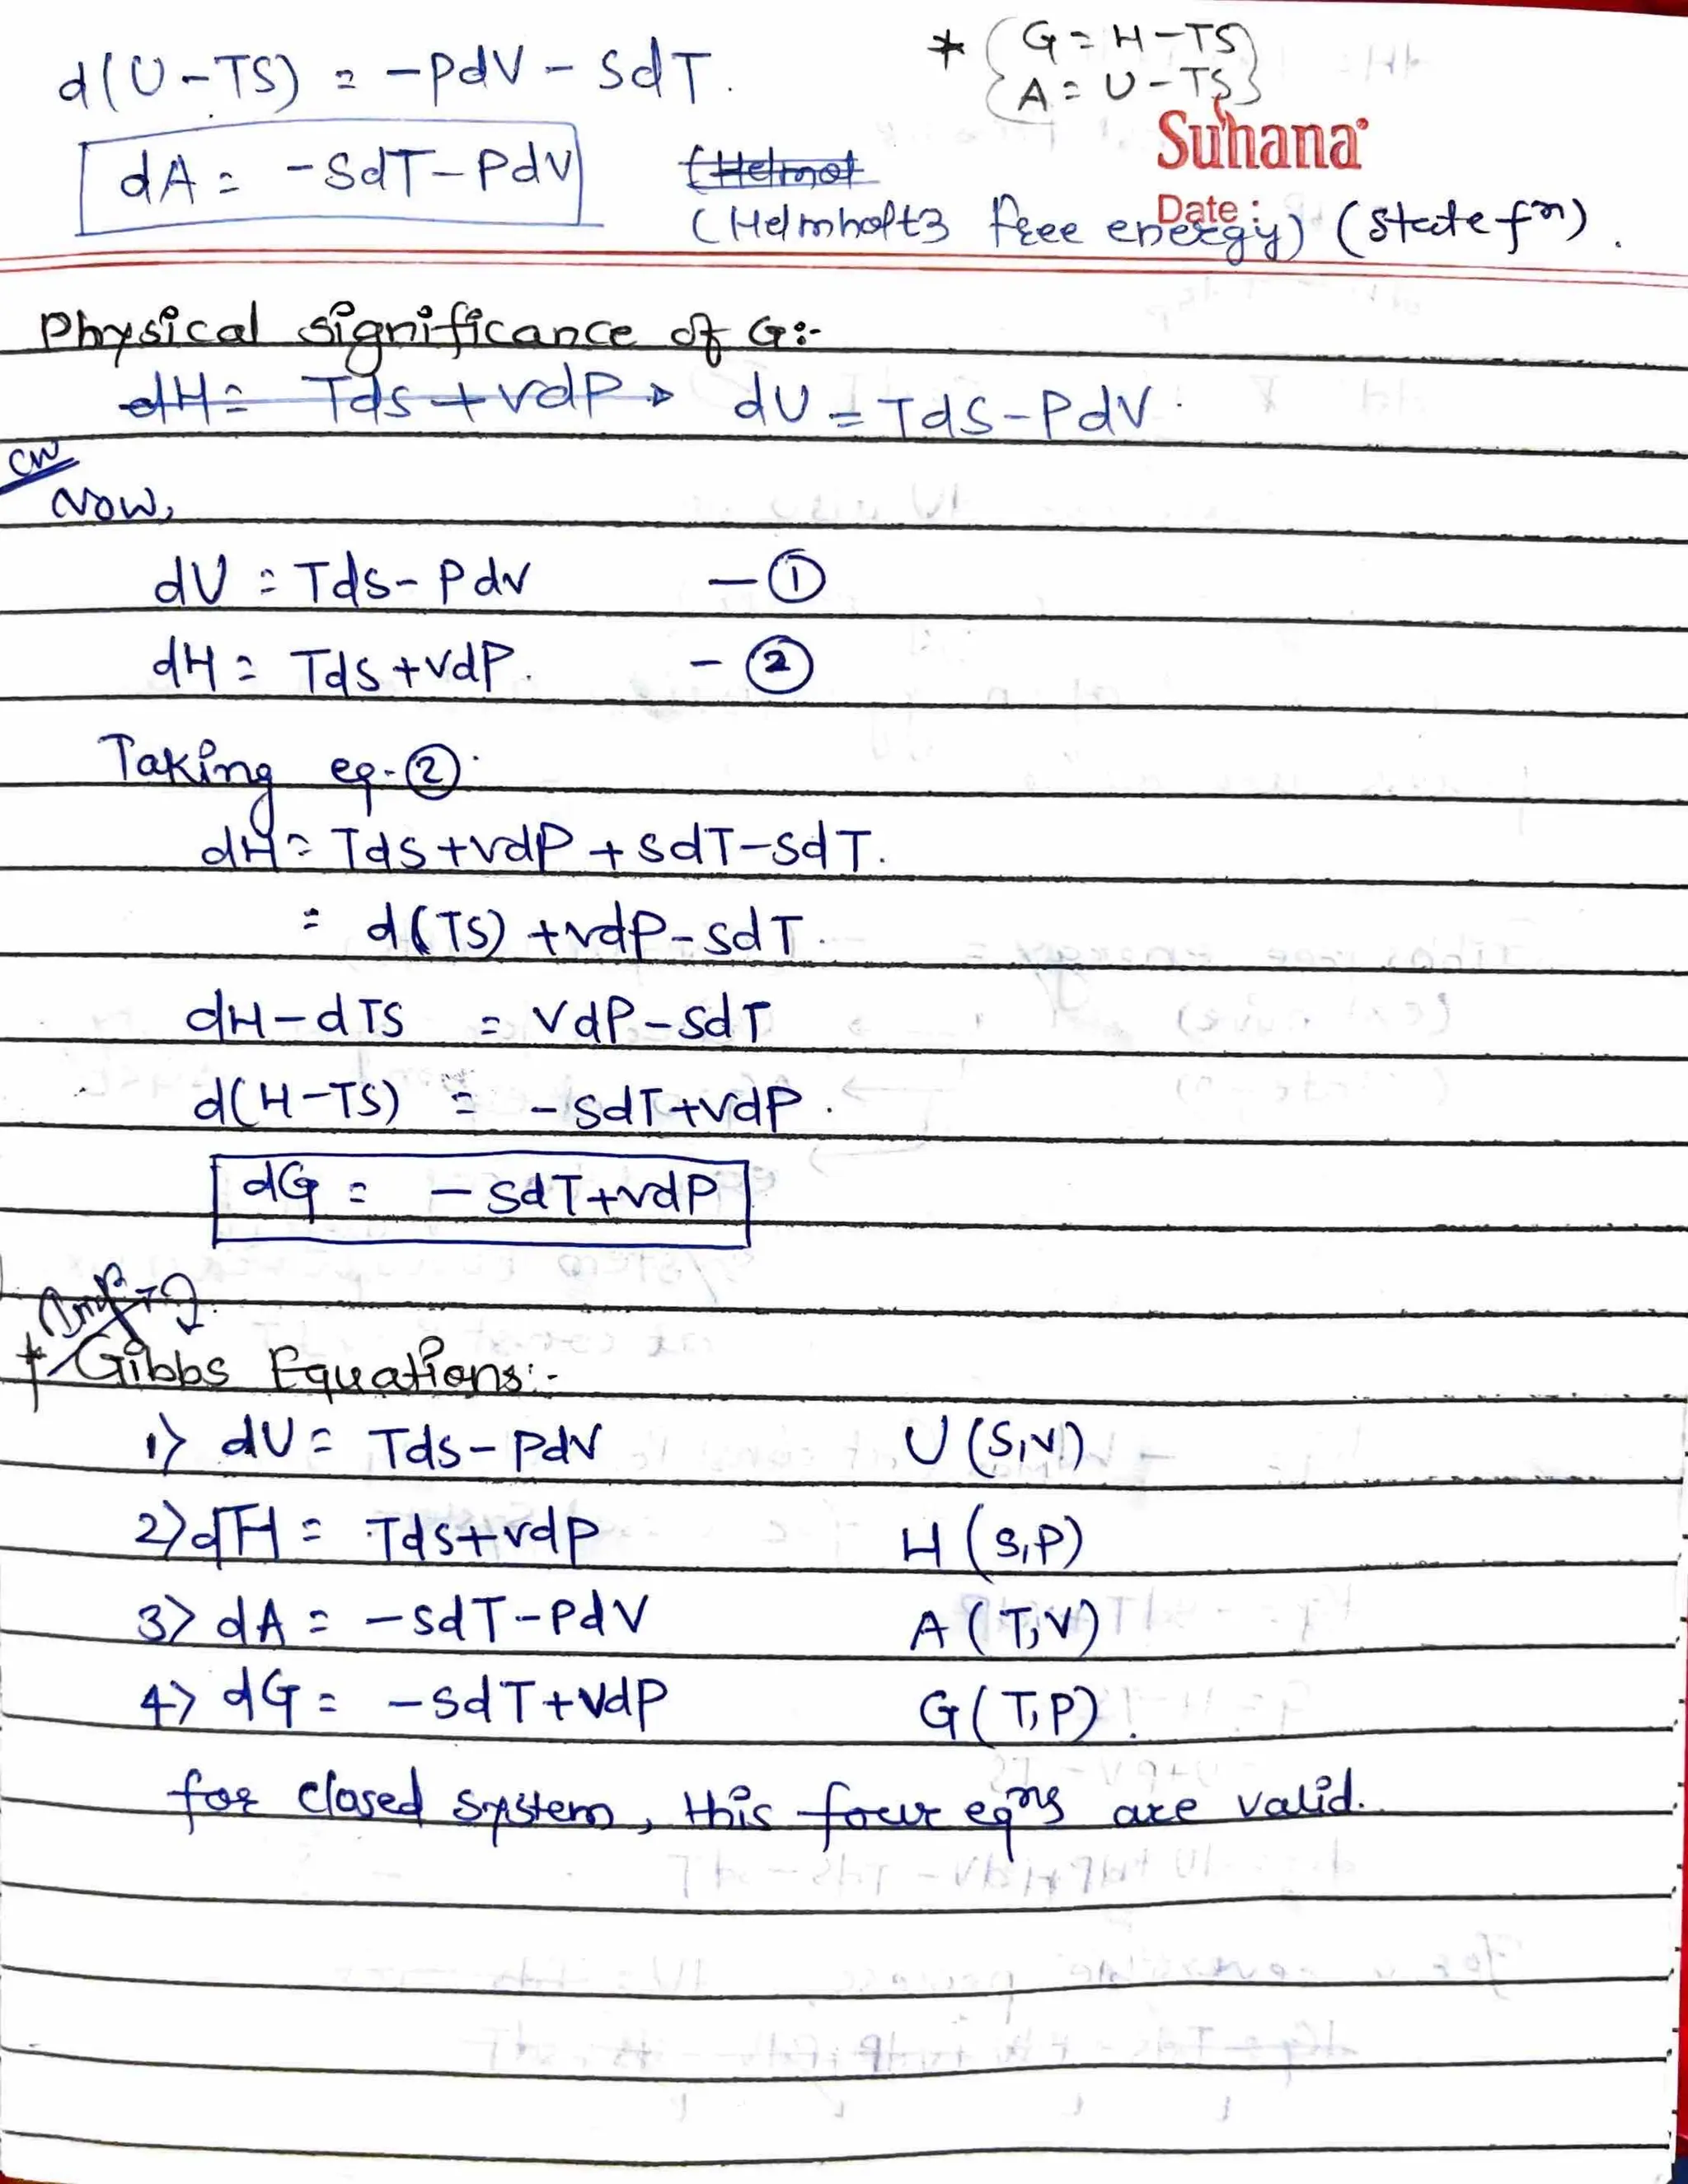 d(U-TS) = -PdV - SdT.
* {G = H-TS
A = U-TS}
Suhana
dA = -SdT-PdV
(Helmot
Date :
(Helmholtz free energy) (state fⁿ).
Physical significance of G:-
dH = Tds + vdP dU = TdS-PdV.
CW
Now,
dU = Tds - Pdv - ①
dH = Tds + vdP. - ②
Taking eq-②.
dH = Tds + vdP + sdT - sdT.
= d(TS) + vdP - sdT.
dH - dTS = VdP - SdT
d(H-TS) = -SdT + VdP.
dG = -SdT + VdP
Imp
* Gibbs Equations:-
1> dU = Tds - PdV U(S,V)
2> dH = Tds + vdp H(S,P)
3> dA = -SdT - PdV A(T,V)
4> dG = -SdT + VdP G(T,P).
for closed system, this four eqⁿˢ are valid.